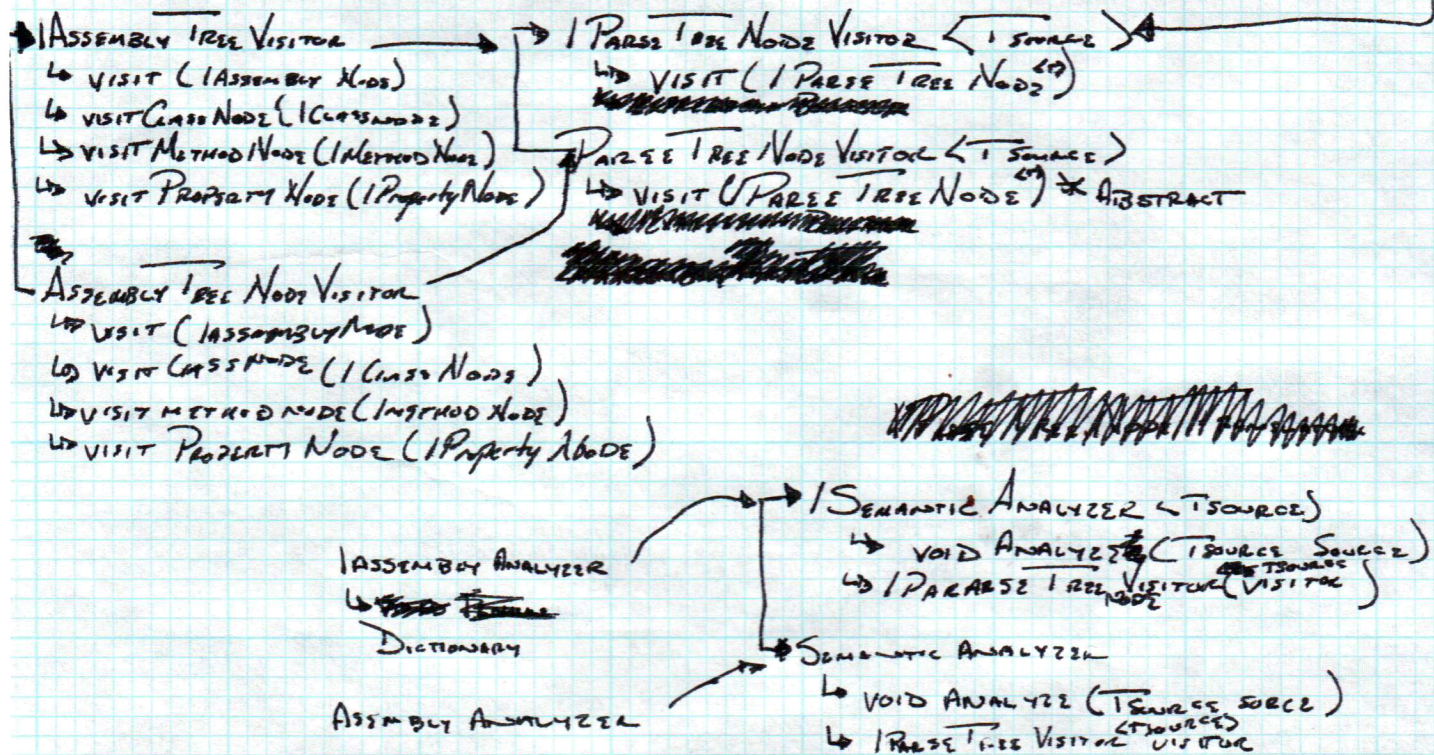 IAssembly Tree Visitor
↳ Visit (IAssembly Node)
↳ visitClassNode (IClassNode)
↳ visitMethodNode (IMethodNode)
↳ visit Property Node (IPropertyNode)
Assembly Tree Node Visitor
↳ Visit (IAssemblyNode)
↳ Visit ClassNode (IClassNode)
↳ visit Method Node (IMethod Node)
↳ visit Property Node (IProperty Node)
IParse Tree Node Visitor <TSource>
↳ Visit (IParse Tree Node <T>)
Parse Tree Node Visitor <TSource>
↳ Visit (IParse Tree Node <T>) * Abstract
IAssembly Analyzer
↳
Dictionary
Asembly Analyzer
ISemantic Analyzer <TSource>
↳ void Analyze (TSource Source)
↳ IPararse Tree Node Visitor <TSource> Visitor
Semantic Analyzer
↳ void Analyze (TSource sorce)
↳ IParse Tree Visitor <TSource> visitor